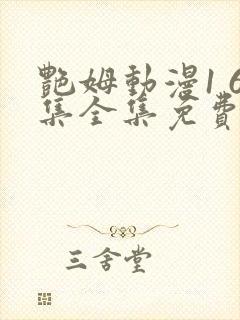 艷姆動漫16
集全集免費
三舍堂